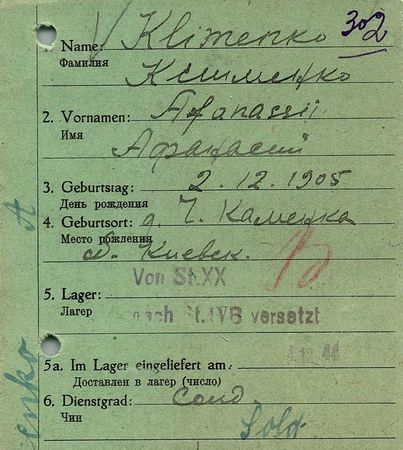 302
1. Name: Klimenko
Фамилия Клименко
2. Vornamen: Afanassii
Имя Афанасий
3. Geburtstag: 2.12.1905
День рождения
4. Geburtsort: д. Г. Каменка
Место рождения
о. Киевск.
Von St.XX
5. Lager:
Лагер nach St.IVB versetzt
5a. Im Lager eingeliefert am:
Доставлен в лагер (число)
6. Dienstgrad: солд.
Чин Sold.
enko A